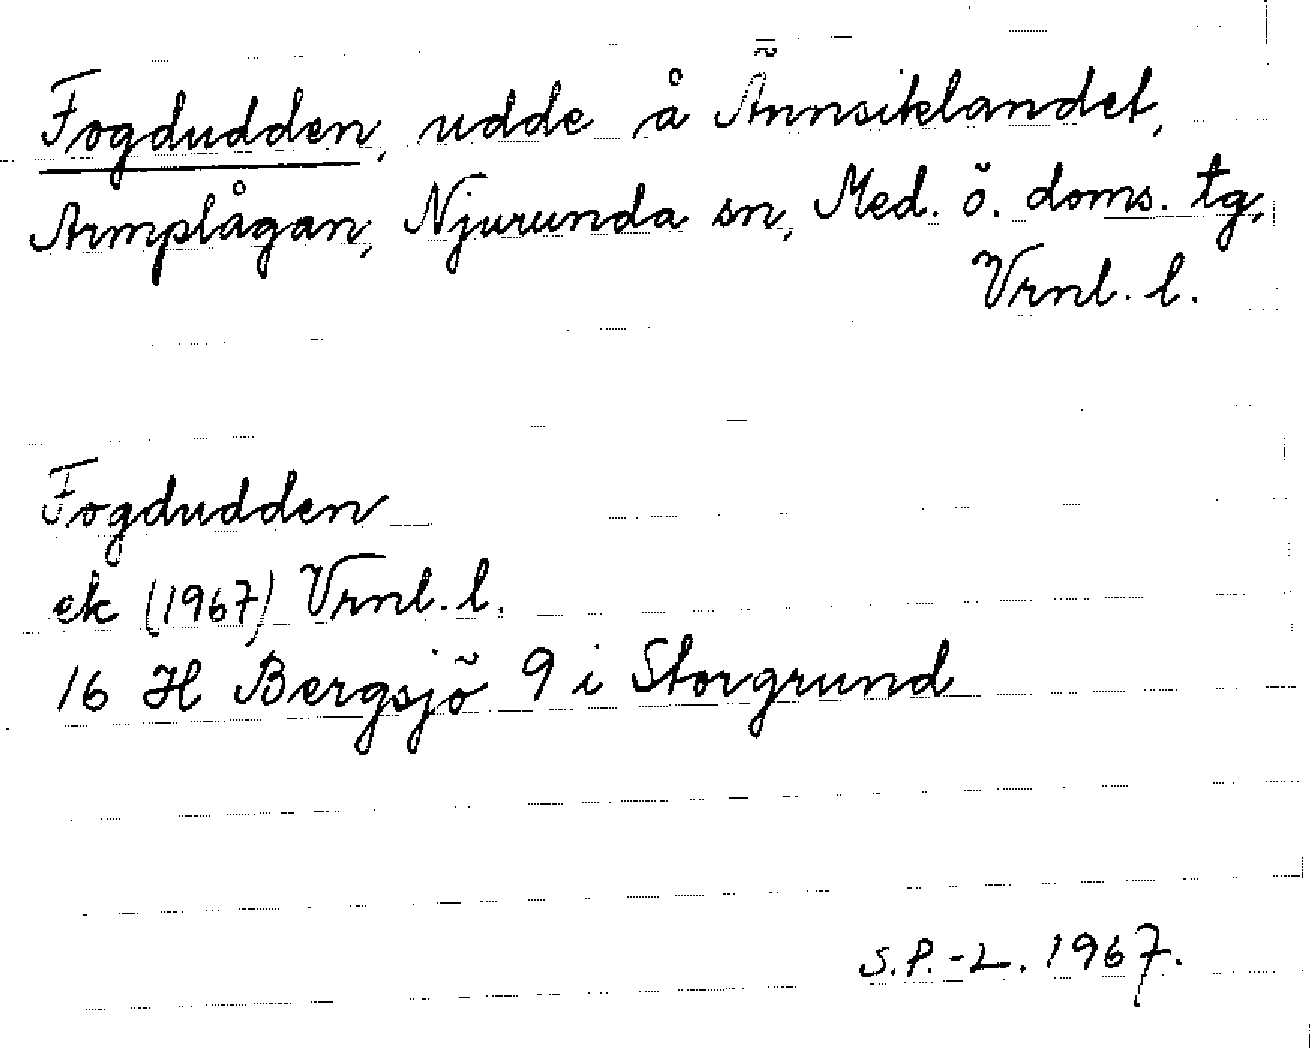 Fogdudden, udde å Ännsiklandet,
Armplågan, Njurunda sn, Med. ö. doms. tg,
Vrnl. l.
Fogdudden
ek (1967) Vrnl. l.
16 H Bergsjö 9 i Storgrund
S.P.-L. 1967.